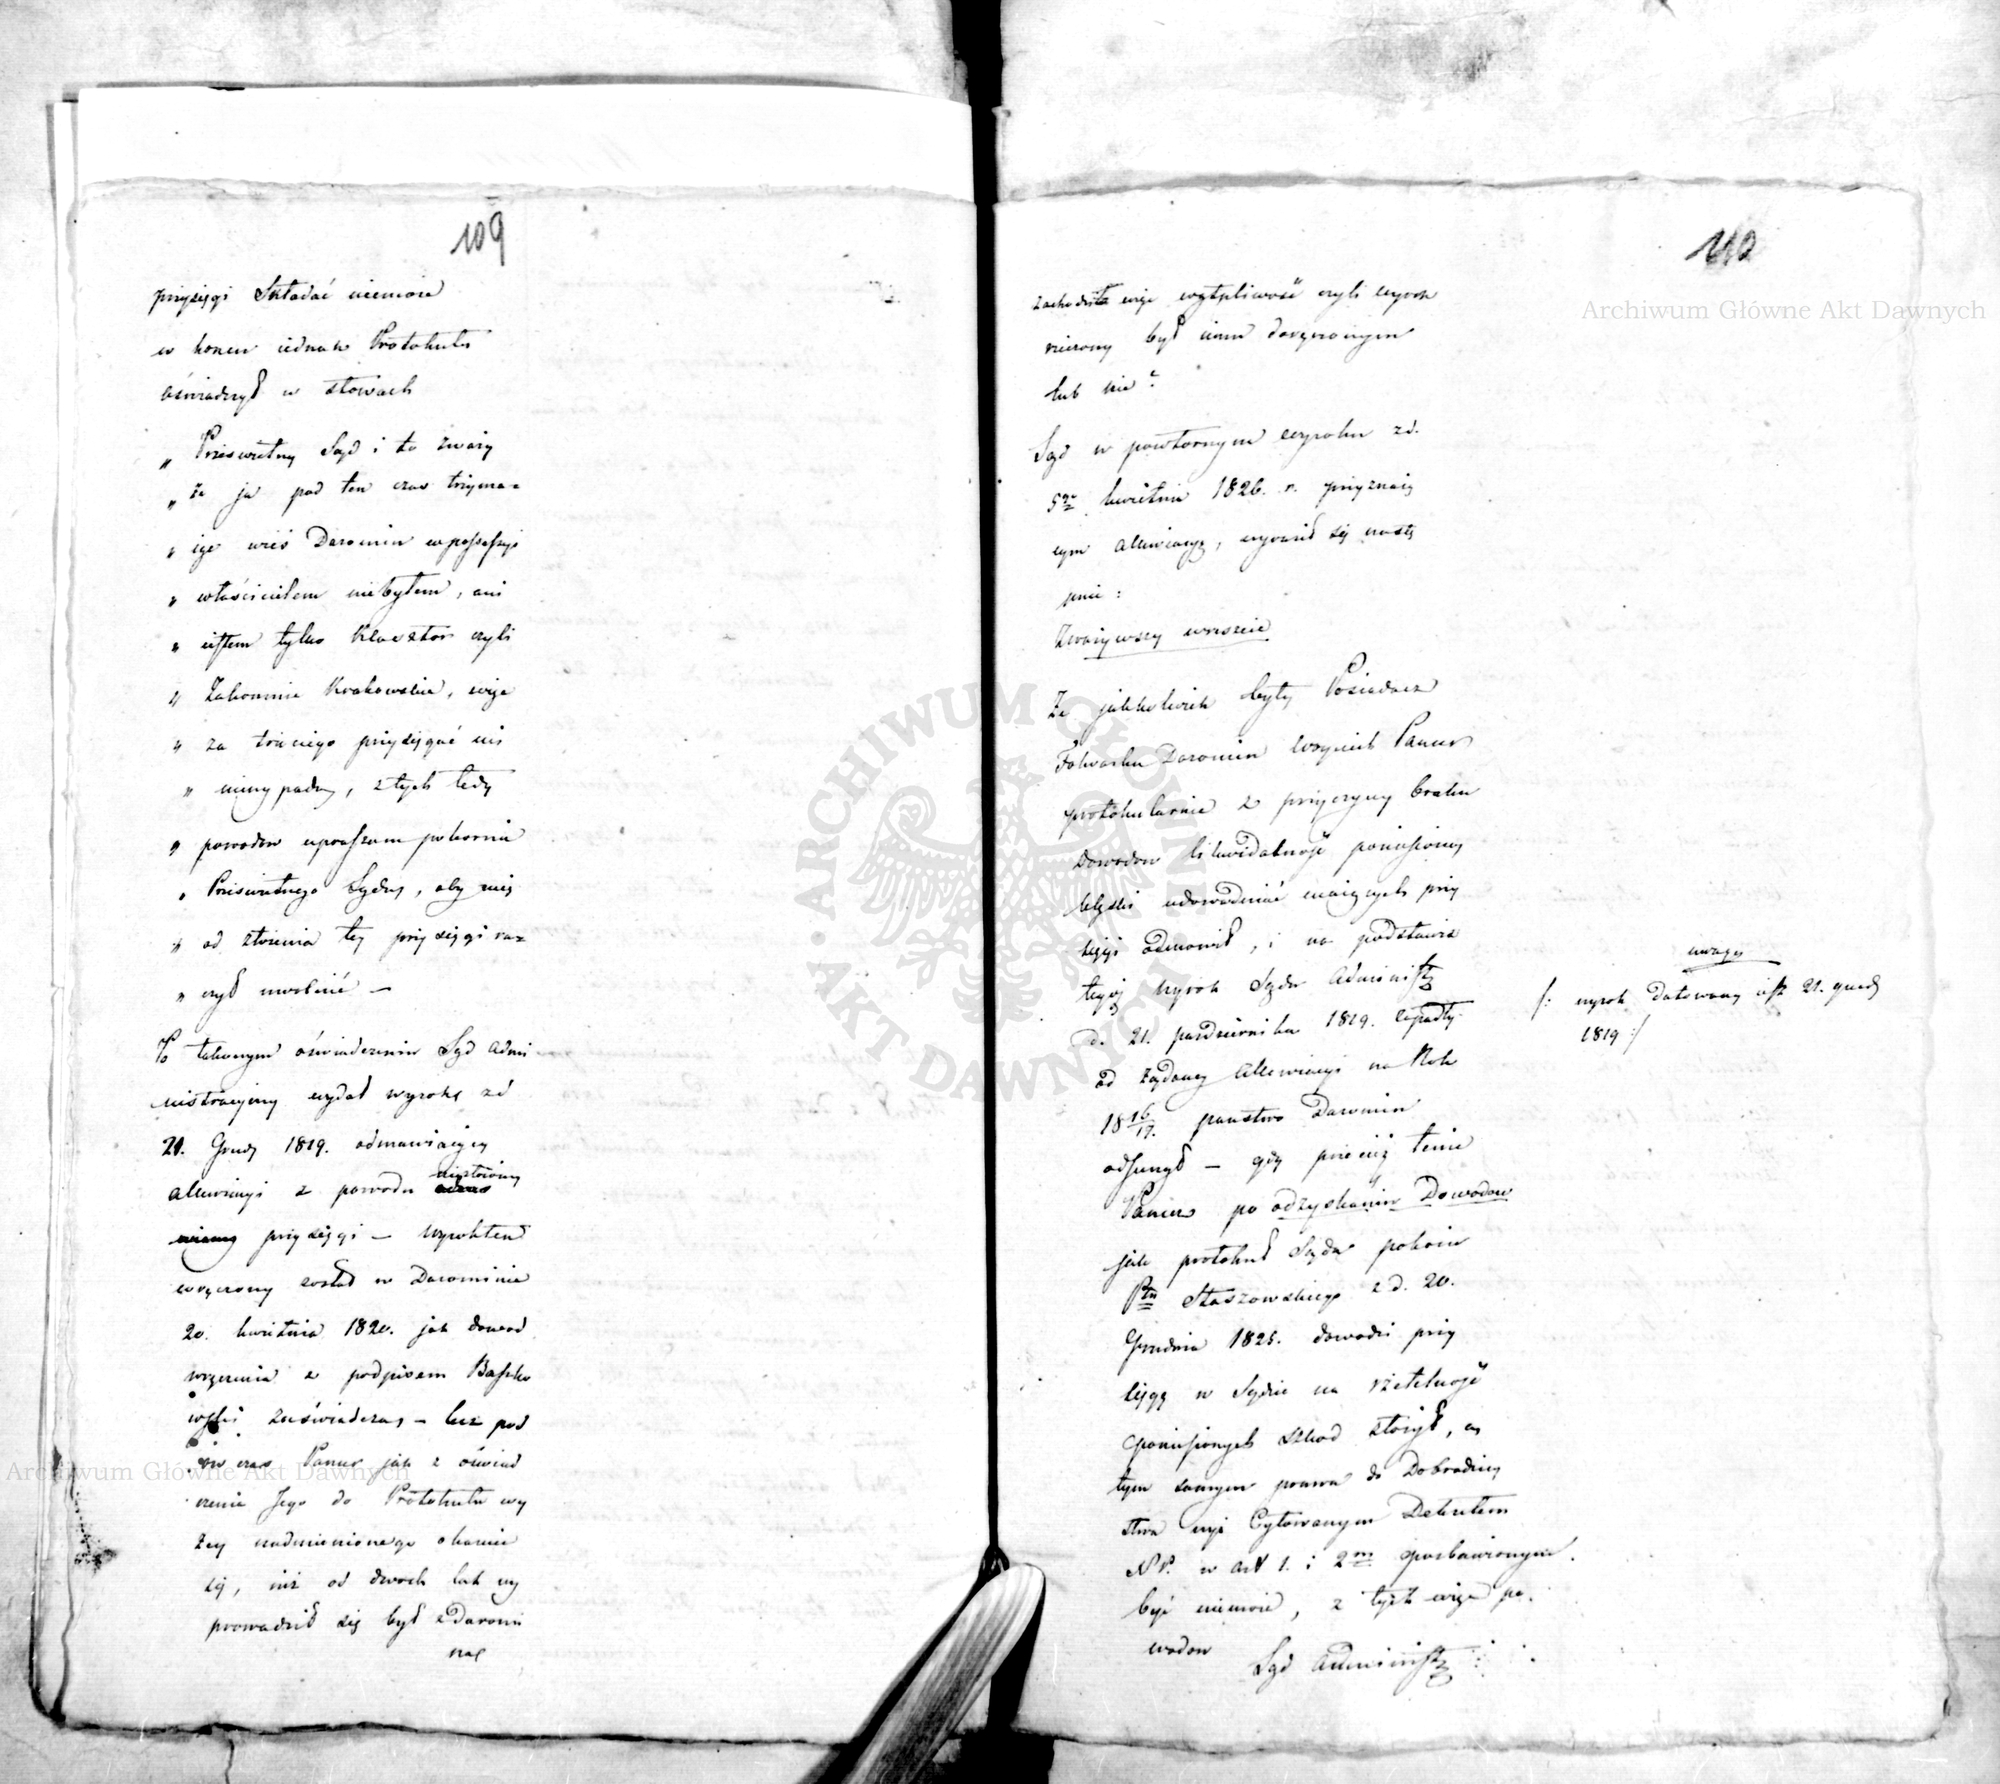 109
przysięgi Składać niemoże
w koncu iednak Protokułu
oświadczył w słowach
„ Prześwietny Sąd i to zważy
„ że ja pod ten czas trzyma=
„ jąc wieś Daromin w possessyi
„ właścicielem niebyłem, ani
„ iestem tylko Klasztor czyli
„ Zakonnice Krakowskie, więc
„ za
„ tych tedy
„ powodow upraszam pokornie
„ Prześwietnego Sądu, aby mię
„ od złożenia tey przysięgi raz
„ czył uwolnić —
Po takowym oświadczeniu Sąd Admi
nistracyiny wydał wyrok z d
21. Grud. 1819. odmawiaiący
allewiacyi z powodu niezłożony
przysięgi — wyrok ten
wręczony został w Darominie
20. kwietnia 1820. jak dowod
wręczenia z podpisem Baszko
wski zaświadcza, — lecz pod
ów czas Panur jak z oświad
czenia Jego do Protokułu wy
żey nadmienionego okazuie
się, już od dwoch lat wy
prowadził się był z Daromi
na
110
zachodziła więc wątpliwość czyli wyrok
rzeczony był iemu doręczonym
lub nie?
Sąd w powtornym wyroku z d.
5go kwietnia 1826. r. przyznaią
cym allewiacyą, wyraził się nastę
pnie:
Zważywszy wreszcie
Że jakkolwiek były Posiadacz
Folwarku Daromin Woyciech Panur
protokularnie z przyczyny braku
Dowodow likwidatność poniesiony
klęski udowodnić maiących przy
sięgi odmowił, i na podstawie
tegoż Wyrok Sądu Administ
d. 21. pazdziernika 1819. zapadły
od żądaney Allewiacyi na Rok
1816/17. panstwo Daromin
odsunął — gdy przecież tenie
Panur po odzyskaniu Dowodow
jak protokuł Sądu pokoiu
Pttu Staszowskiego z d. 20.
Grudnia 1825. dowodzi przy
sięgę w Sądzie na rzetelność
poniesionych szkod złożył, a
tym samym prawa do Dobrodziey
stwa wyż Cytowanym Dekretem
N P. w art 1. i 2m pozbawionym
być niemoże, z tych więc po.
wodow
Sąd Administ
uwaga
/: wyrok datowany iest 21. grud
1819 :/
Archiwum Główne Akt Dawnych
Archiwum Główne Akt Dawnych
ARCHIWUM GŁÓWNE • AKT DAWNYCH •